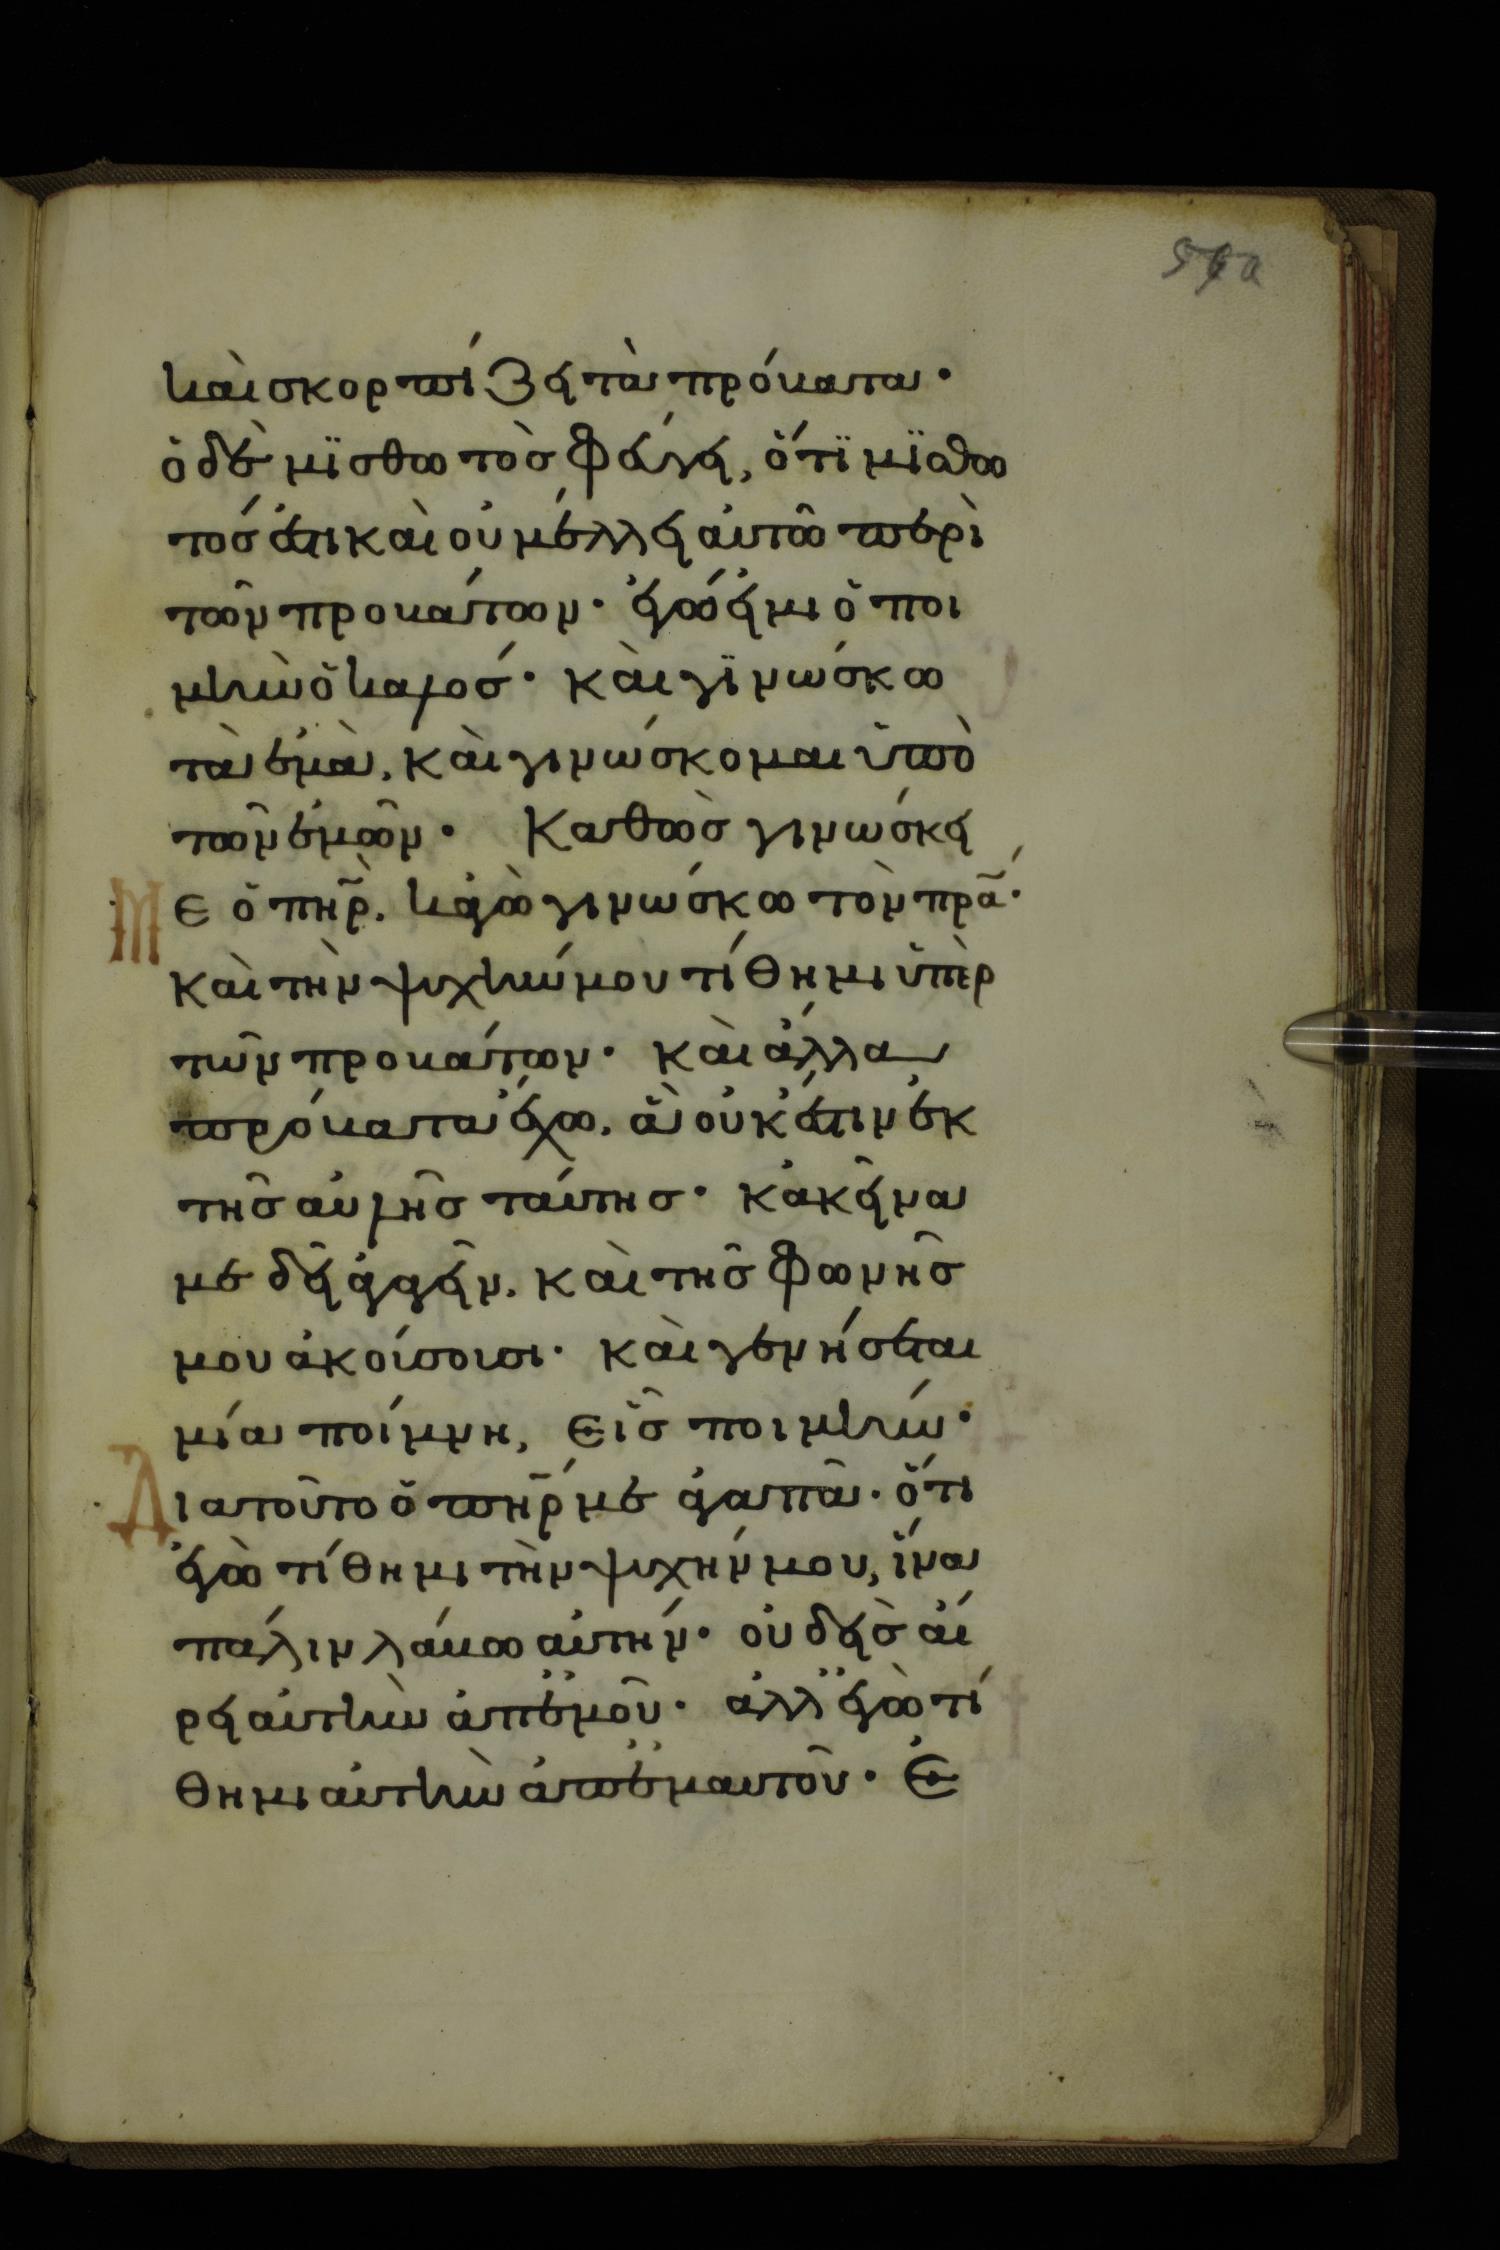 καὶ σκορπίζει τὰ πρόβατα·
ὁ δὲ μϊσθωτὸσ φέυγει, ὅτϊ μϊσθω
τόσ ἐστι καὶ οὐ μέλλει αὐτῶ περὶ
τῶν προβάτων· ἐγώ ἐιμι ὁ ποι
μὴν ὁ καλοσ· καὶ γϊνώσκω
τὰ ἐμὰ, καὶ γινώσκομαι ὑπὸ
τῶν ἐμῶν· Καθὼσ γινώσκει
Με ὁ πη̅ρ̅, κἀγὼ γινώσκω τὸν πρ̅α̅·
καὶ τὴν ψυχήν μου τίθημι ὑπὲρ
τῶν προβάτων· καὶ ἄλλα
πρόβατα ἔχω, ἃ οὐκ ἔστιν ἐκ
τῆσ αὐλῆσ ταύτησ· κἀκεῖνα
με δεῖ ἀγαγεῖν, καὶ τῆσ φωνῆσ
μου ἀκούσουσι· καὶ γενήσεται
μία ποίμνη, εἷσ ποιμήν·
Διατοῦτο ὁ πη̅ρ̅ με ἀγαπᾶ· ὅτι
ἐγὼ τίθημι τὴν ψυχήν μου, ἵνα
πάλιν λάβω αὐτήν· οὐδεὶσ αἴ
ρει αὐτὴν ἀπ᾽ ἐμοῦ· ἀλλ᾽ ἐγὼ τί
θημι αὐτὴν ἀπ᾽ ἐμαυτοῦ· Ἐ